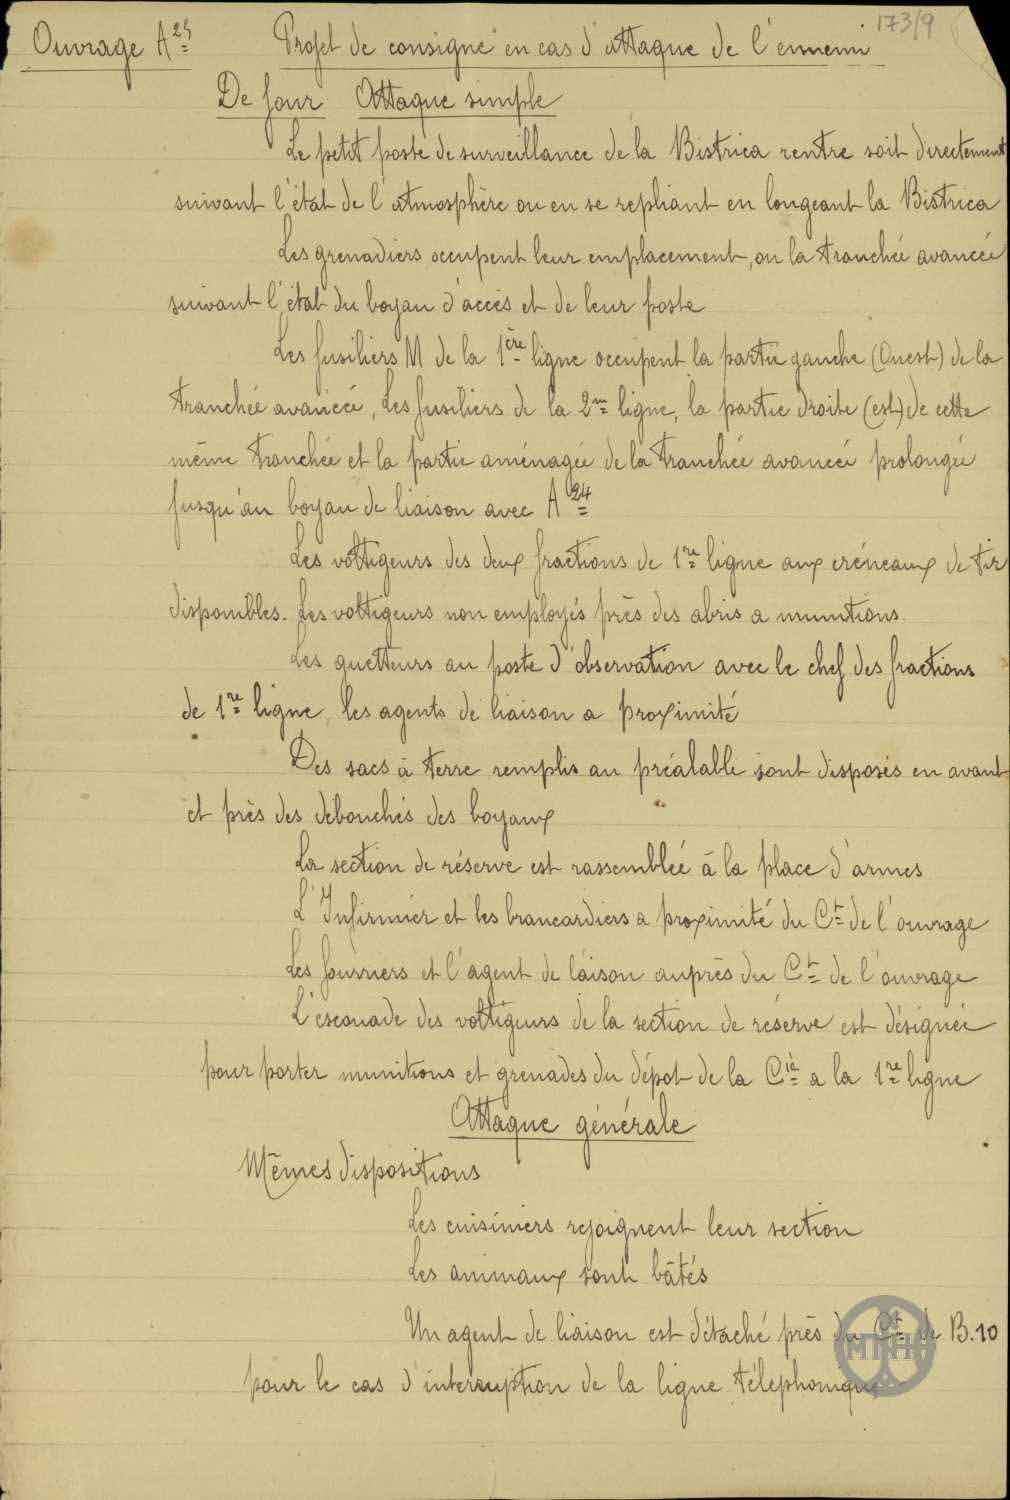 173/9
Ouvrage A 24 Projet de consigne en cas d'attaque de l'ennemi
De Jour Attaque simple
Le petit poste de surveillance de la Bistrica rentre soit directement
suivant l'état de l'atmosphère ou en se repliant en longeant la Bistrica
Les grenadiers occupent leur emplacement, ou la tranchée avancée
suivant l'état du boyau d'accès et de leur poste
Les fusiliers M de la 1ère ligne occupent la partie gauche (Ouest) de la
tranchée avancée, Les fusiliers de la 2me ligne, la partie droite (est) de cette
même tranchée et la partie aménagée de la tranchée avancée prolongée
jusqu'au boyau de liaison avec A 24
Les voltigeurs des deux fractions de 1re ligne aux créneaux de tir
disponibles. Les voltigeurs non employés près des abris a munitions.
Les guetteurs au poste d'observation avec le chef des fractions
de 1re ligne, les agents de liaison a proximité
Des sacs à terre remplis au préalable sont disposés en avant
et près des débouchés des boyaux
La section de réserve est rassemblée à la place d'armes
L'Infirmier et les brancardiers a proximité du Ct de l'ouvrage
Les fourriers et l'agent de liaison auprès du Ct de l'ouvrage
L'escouade des voltigeurs de la section de réserve est désignée
pour porter munitions et grenades du dépot de la Cie a la 1re ligne
Attaque générale
Mêmes dispositions
Les cuisiniers rejoignent leur section
Les animaux sont bâtés
Un agent de liaison est détaché près du Ct de B.10
pour le cas d'interruption de la ligne téléphonique